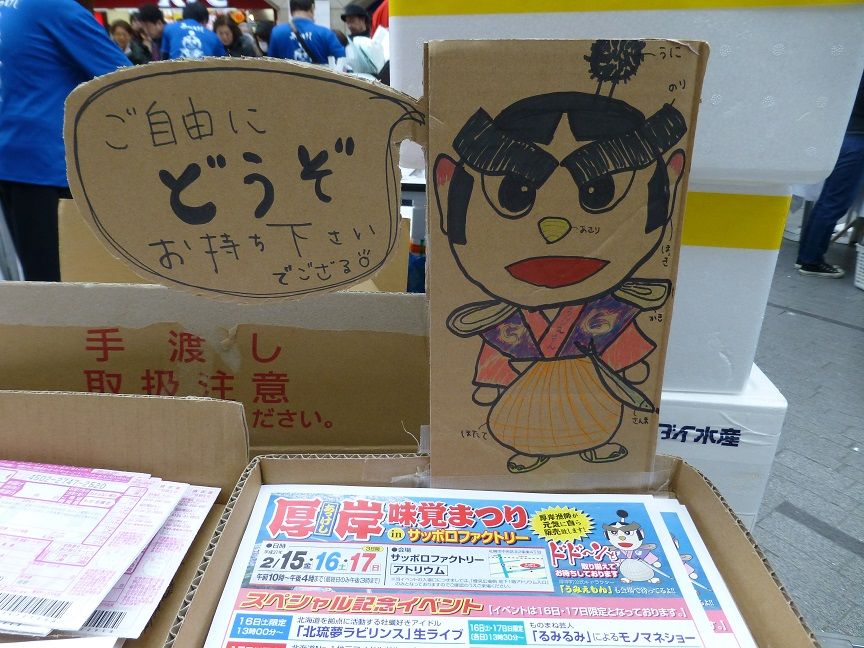 ご自由に
どうぞ
お持ち下さい
でござる
うに
のり
あさり
ほっき
かき
さんま
ほたて
手渡し
取扱注意
ださい。
水産
4502-2741-2520
厚岸 味覚まつり
あっけし
in サッポロファクトリー
厚岸漁師が
元気に自ら
販売致します!
●日時
2/15金・16土・17日
午前10時~午後4時まで
●会場
サッポロファクトリー
アトリウム
ドドーンと
取り揃えて
お待ちしております
「うみえもん」
スペシャル記念イベント【イベントは16日・17日限定となっております。】
16日土限定
13時00分~
北海道を拠点に活動する牡蠣好きアイドル
「北琉夢ラビリンス」生ライブ
16土・17日限定
(各日)13時30分~
ものまね芸人
「るみるみ」によるモノマネショー